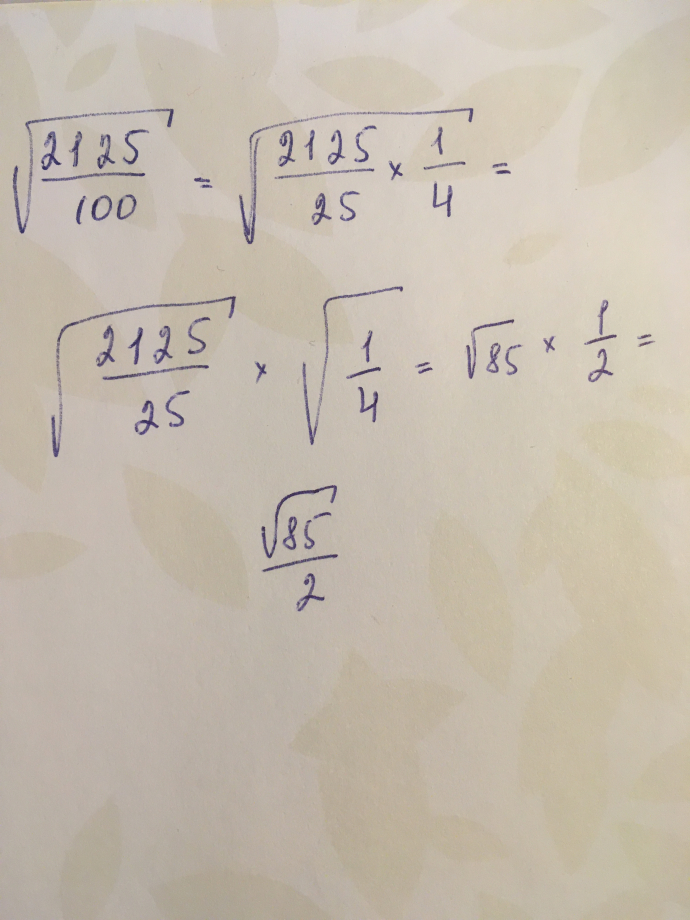 √(2125/100) = √(2125/25 × 1/4) =
√(2125/25) × √(1/4) = √85 × 1/2 =
√85/2